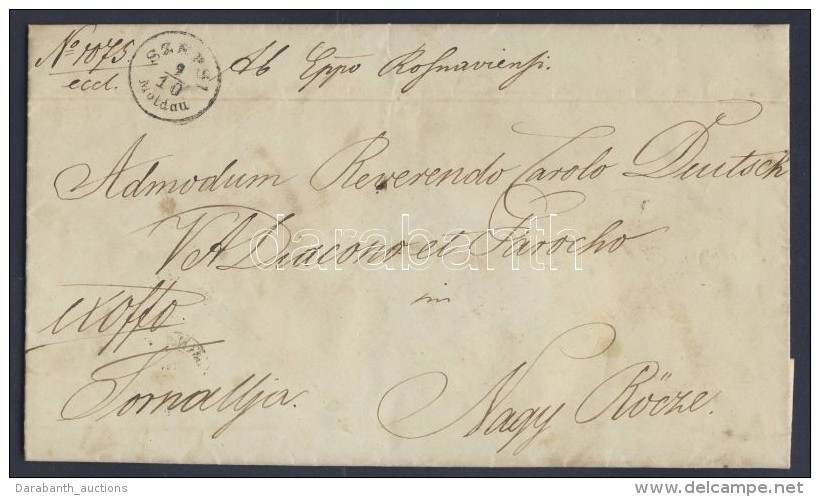 No 1075.
eccl.
SZEPSI
9/10
Moldau
Ab Eppo Rosnaviensi.
Admodum Reverendo Carolo Deutsch
VADiacono et Parocho
in
exoffo.
Tornallja.
Nagy Rőcze.
darabanth
Darabanth_auctions
www.delcampe.net